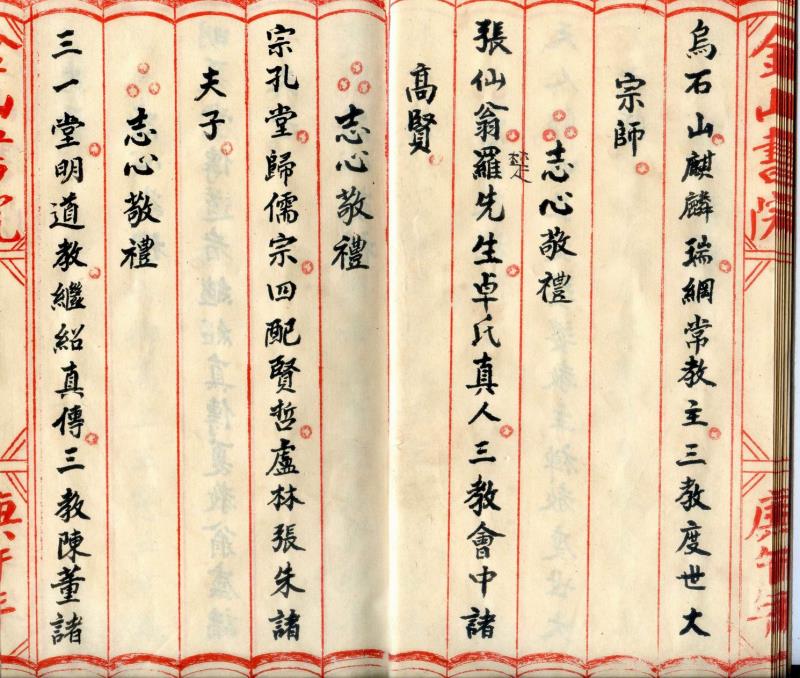 金山書院
庚午年
烏石山麒麟瑞綱常教主三教度世大
宗師
志心敬禮
張仙翁羅先生卓氏真人三教會中諸
楚
高賢
志心敬禮
宗孔堂歸儒宗四配賢哲盧林張朱諸
夫子
志心敬禮
三一堂明道教繼紹真傳三教陳董諸